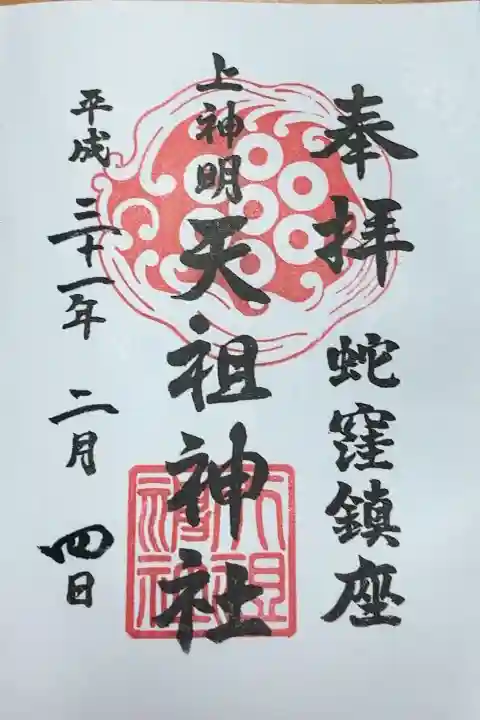 奉拝
蛇窪鎮座
上神明
天祖神社
天祖神社
平成三十一年二月四日